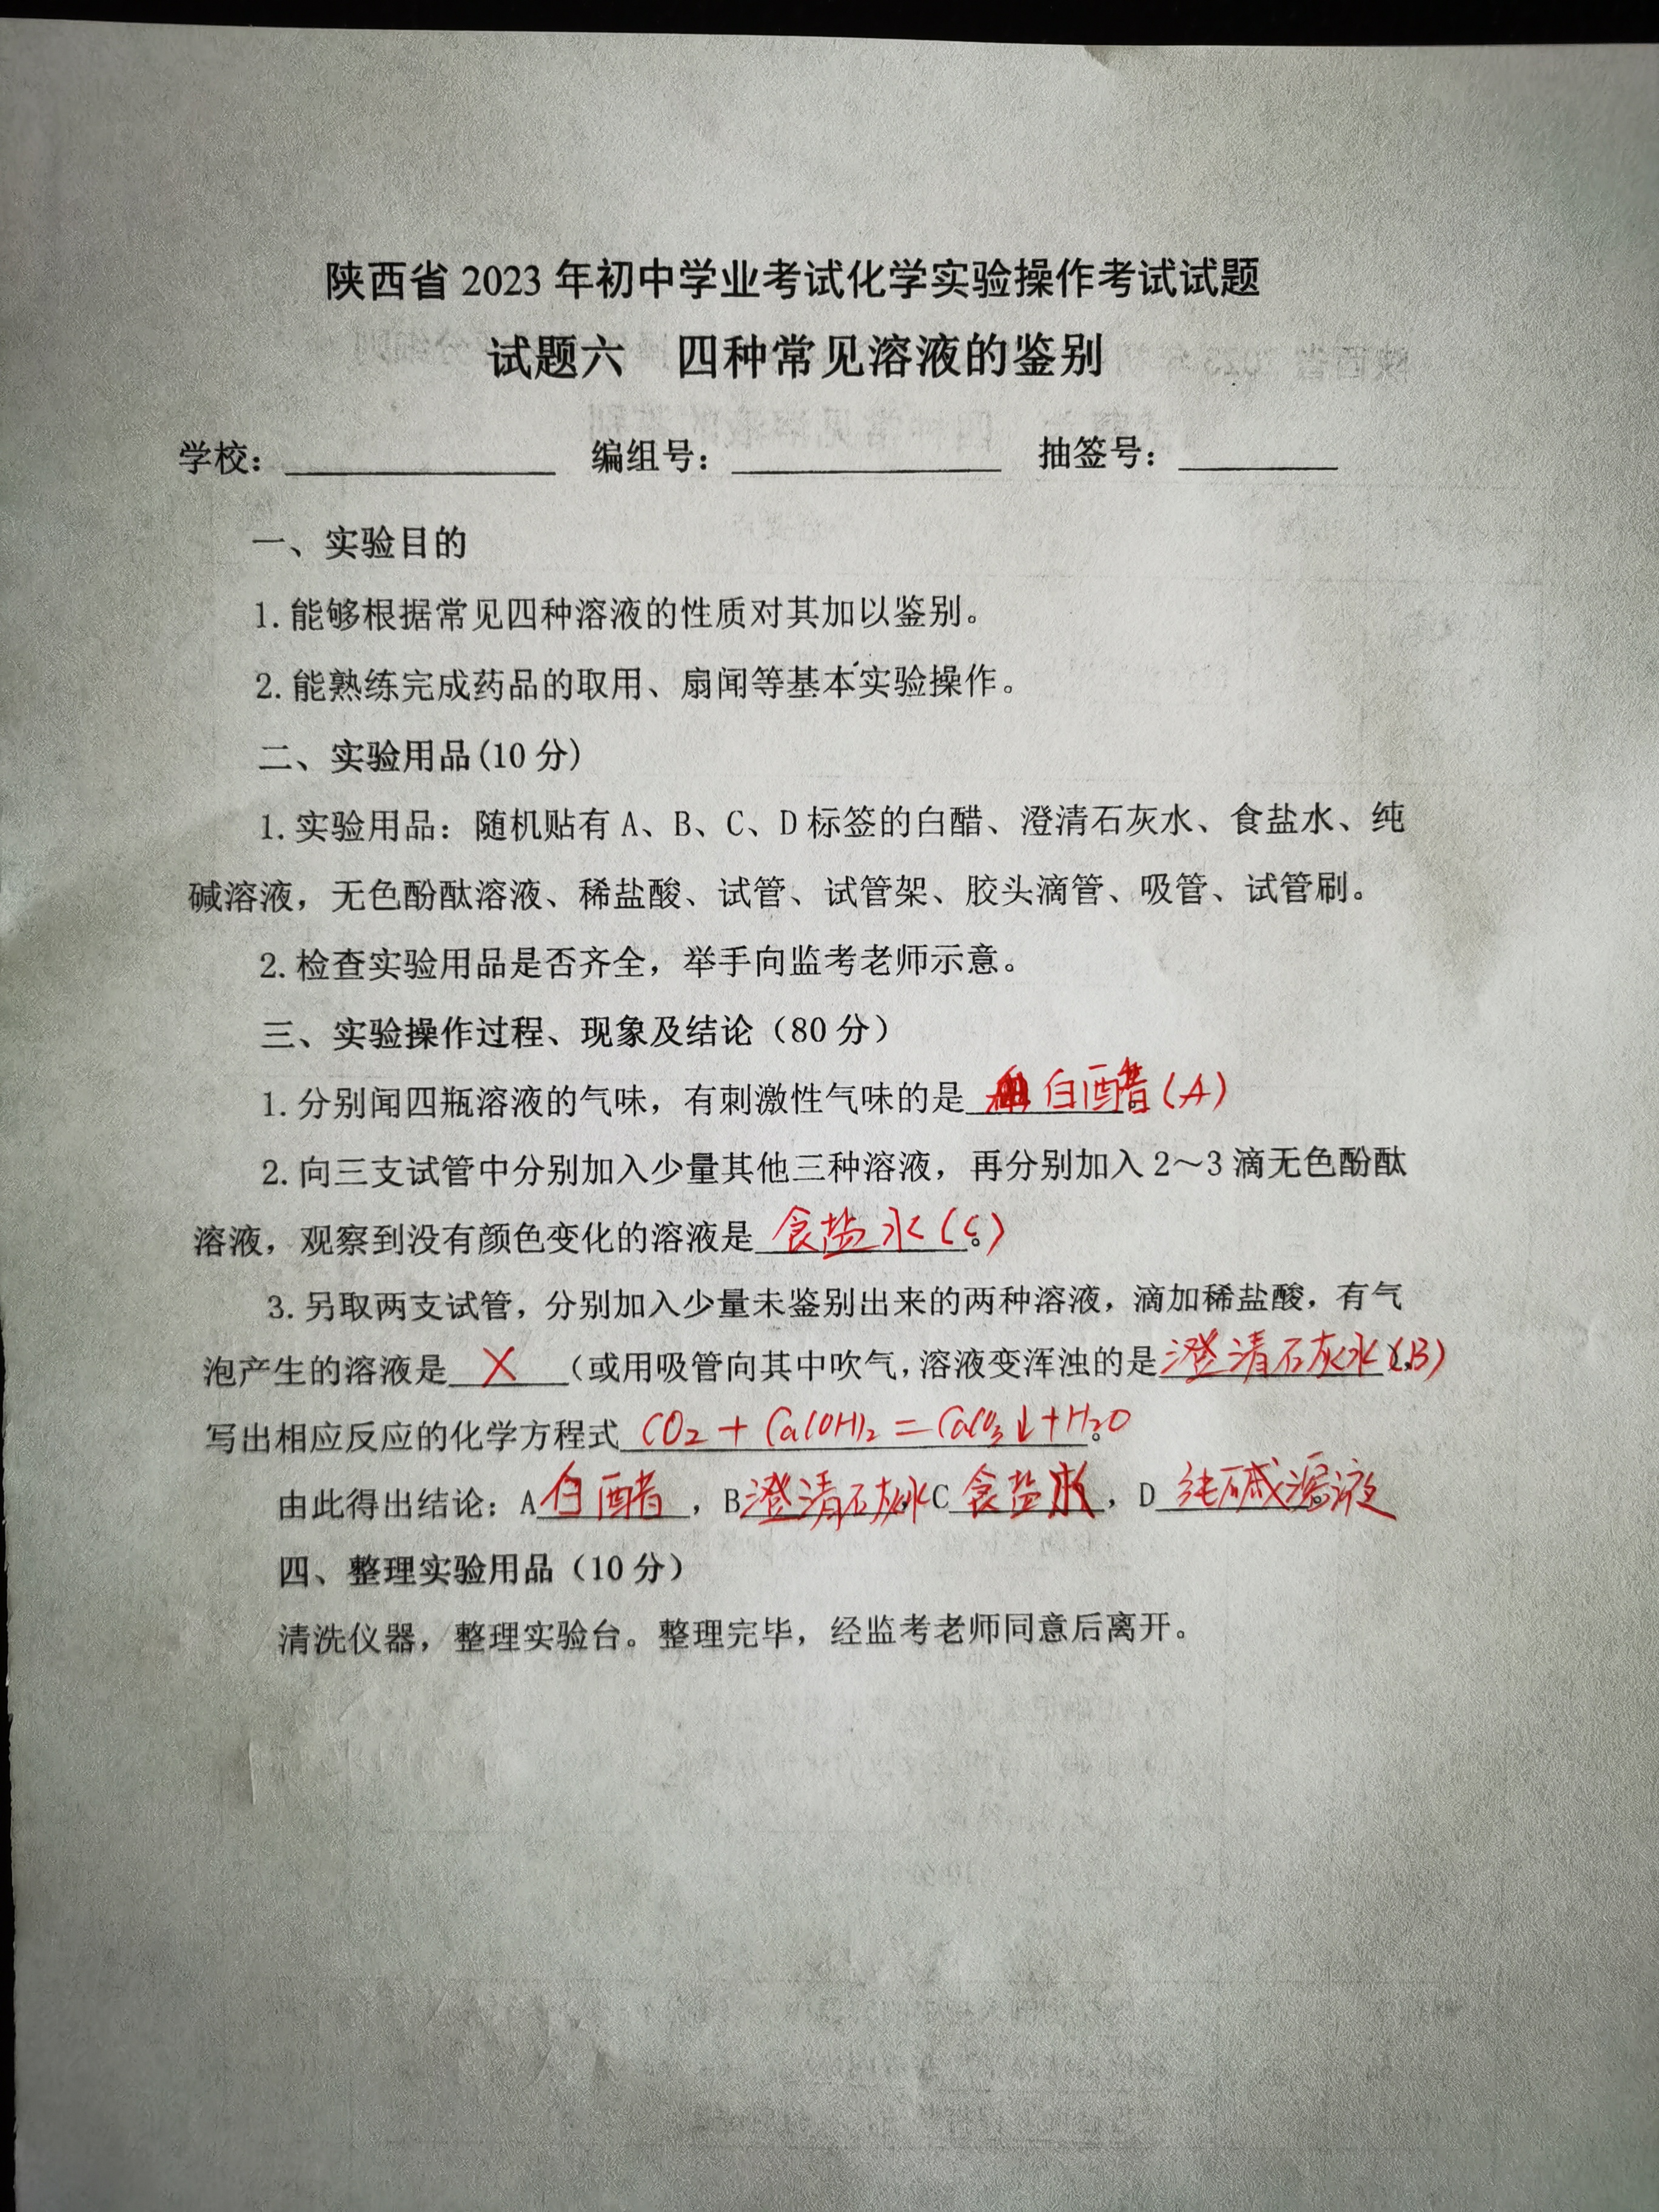 陕西省 2023 年初中学业考试化学实验操作考试试题
试题六 四种常见溶液的鉴别
学校：____________ 编组号：____________ 抽签号：_______
一、实验目的
1.能够根据常见四种溶液的性质对其加以鉴别。
2.能熟练完成药品的取用、扇闻等基本实验操作。
二、实验用品(10 分)
1.实验用品：随机贴有 A、B、C、D 标签的白醋、澄清石灰水、食盐水、纯
碱溶液，无色酚酞溶液、稀盐酸、试管、试管架、胶头滴管、吸管、试管刷。
2.检查实验用品是否齐全，举手向监考老师示意。
三、实验操作过程、现象及结论（80 分）
1.分别闻四瓶溶液的气味，有刺激性气味的是 白醋(A)
2.向三支试管中分别加入少量其他三种溶液，再分别加入 2～3 滴无色酚酞
溶液，观察到没有颜色变化的溶液是 食盐水(C)。
3.另取两支试管，分别加入少量未鉴别出来的两种溶液，滴加稀盐酸，有气
泡产生的溶液是 X （或用吸管向其中吹气,溶液变浑浊的是 澄清石灰水(B)
写出相应反应的化学方程式 CO₂+Ca(OH)₂=CaCO₃↓+H₂O。
由此得出结论：A 白醋，B 澄清石灰水，C 食盐水，D 纯碱溶液
四、整理实验用品（10 分）
清洗仪器，整理实验台。整理完毕，经监考老师同意后离开。